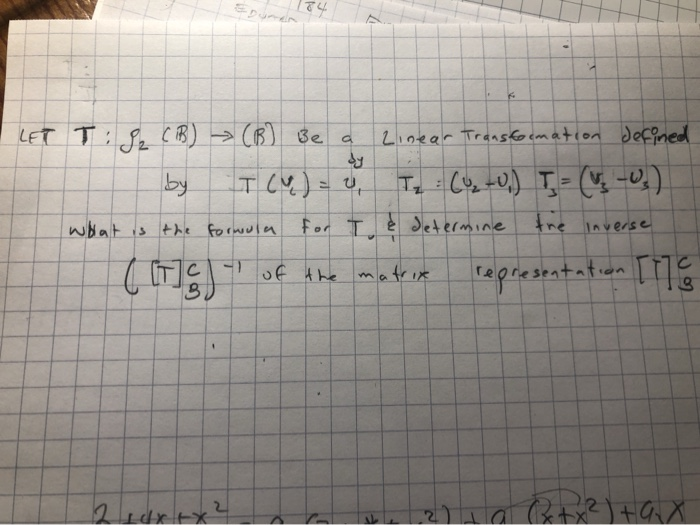 184
LET T: P₂ (R) → (R) Be a Linear Transformation defined
by
by T(v₁) = v₁ T₂ = (v₂ - v₁) T₃ = (v₃ - v₃)
what is the formula for T, & determine the inverse
([T]ᶜ_B)⁻¹ of the matrix representation [T]ᶜ_B
2 + 4x + x² 2) + a (3 + x²) + a x